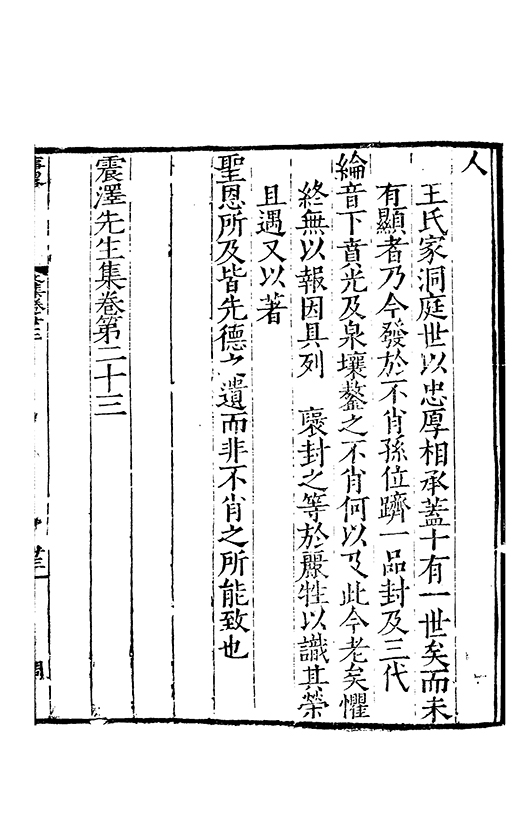 人
王氏家洞庭世以忠厚相承蓋十有一世矣而未
有顯者乃今發於不肖孫位躋一品封及三代
綸音下賁光及泉壤鏊之不肖何以及此今老矣懼
終無以報因具列　褒封之等於麗牲以識其榮
且遇又以著
聖恩所及皆先德之遺而非不肖之所能致也
震澤先生集卷第二十三